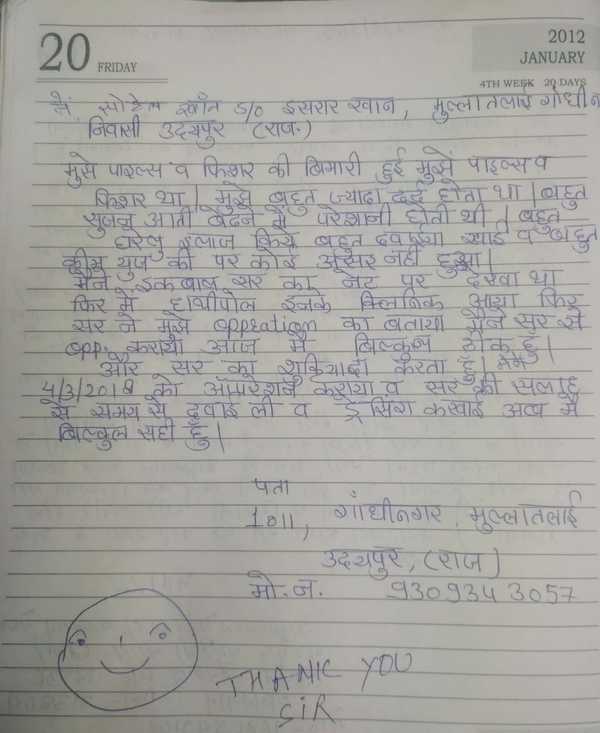 20 FRIDAY
2012
JANUARY
4TH WEEK 20 DAYS
मैं, सोहेल खाँन S/o इसरार खान, मुल्लातलाई गांधीन
निवासी उदयपुर (राज.)
मुझे पाइल्स व फिशर की बिमारी हुई मुझे पाइल्स व
फिशर था। मुझे बहुत ज्यादा दर्द होता था। बहुत
सुजन आती बेठने में परेशानी होती थी। बहुत
घरेलु इलाज किये बहुत दवाईया खाई व बहुत
क्रीम युज की पर कोई असर नही हुआ।
मैंने इकबाल सर का नेट पर देखा था
फिर में हाथीपोल इनके क्लिनिक आया फिर
सर ने मुझे oppration का बताया मैंने सर से
opp. कराया आज में बिल्कुल ठीक हूँ।
और सर का शुक्रियादा करता हूँ। मैंने
4/3/2018 को ऑपरेशन कराया व सर की सलाह
से समय से दवाई ली व ड्रेसिंग करवाई अब में
बिल्कुल सही हूँ।
पता
1011, गांधीनगर, मुल्लातलाई
उदयपुर, (राज)
मो. न. 9309343057
THANK YOU
SIR